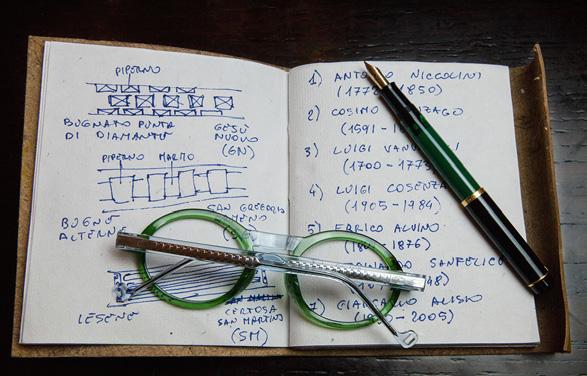 PIPERNO
BUGNATO PUNTA
DI DIAMANTE
GESÙ
NUOVO
(GN)
PIPERNO MARMO
SAN GREGORIO
BUGNE
ALTERNE
LESENE
CERTOSA
SAN MARTINO
(SM)
1) NICCOLINI
1850)
2) COSIMO
(1591 -
3) LUIGI
(1700 - 1773
4) LUIGI COSENZA
(1905 - 1984)
5) ERRICO ALVINO
1876)
SANFELICE
48)
7) GIANCARLO ALISIO
2005)